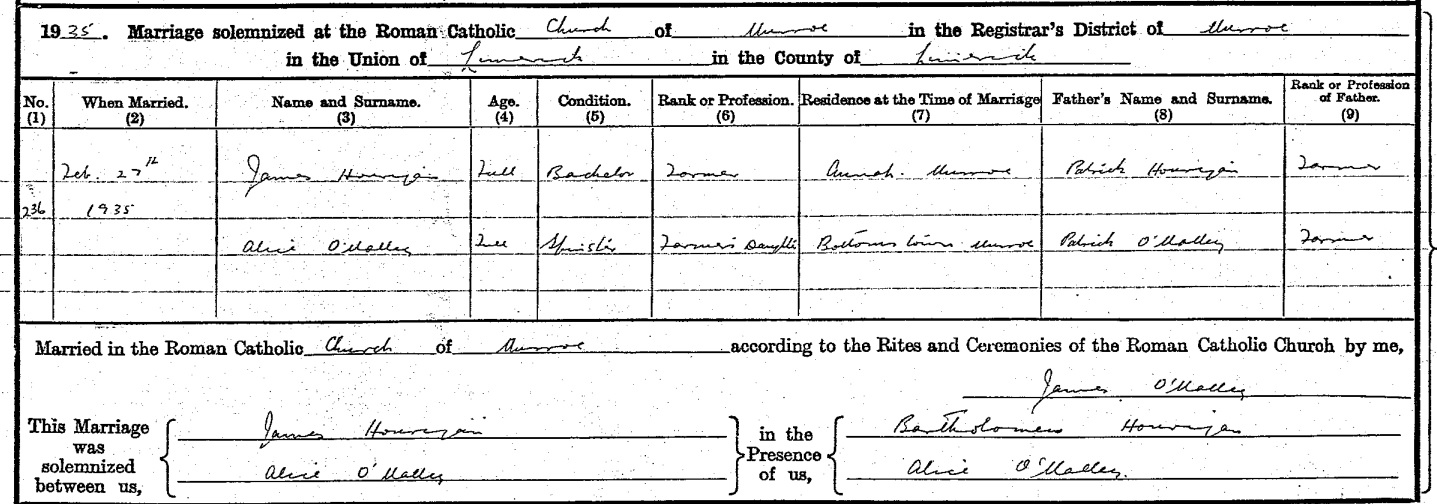 1935. Marriage solemnized at the Roman Catholic Church of Murroe in the Registrar's District of Murroe
in the Union of Limerick in the County of Limerick
No. (1) When Married. (2) Name and Surname. (3) Age. (4) Condition. (5) Rank or Profession. (6) Residence at the Time of Marriage (7) Father's Name and Surname. (8) Rank or Profession of Father. (9)
Feb. 27th James Hourigan Full Bachelor Farmer Annah. Murroe Patrick Hourigan Farmer
236 1935
Alice O'Malley Full Spinster Farmer's Daughter Bottomstown Murroe Patrick O'Malley Farmer
Married in the Roman Catholic Church of Murroe according to the Rites and Ceremonies of the Roman Catholic Church by me,
James O'Malley
This Marriage was solemnized between us, James Hourigan in the Presence of us, Bartholomew Hourigan
Alice O'Malley Alice O'Malley.